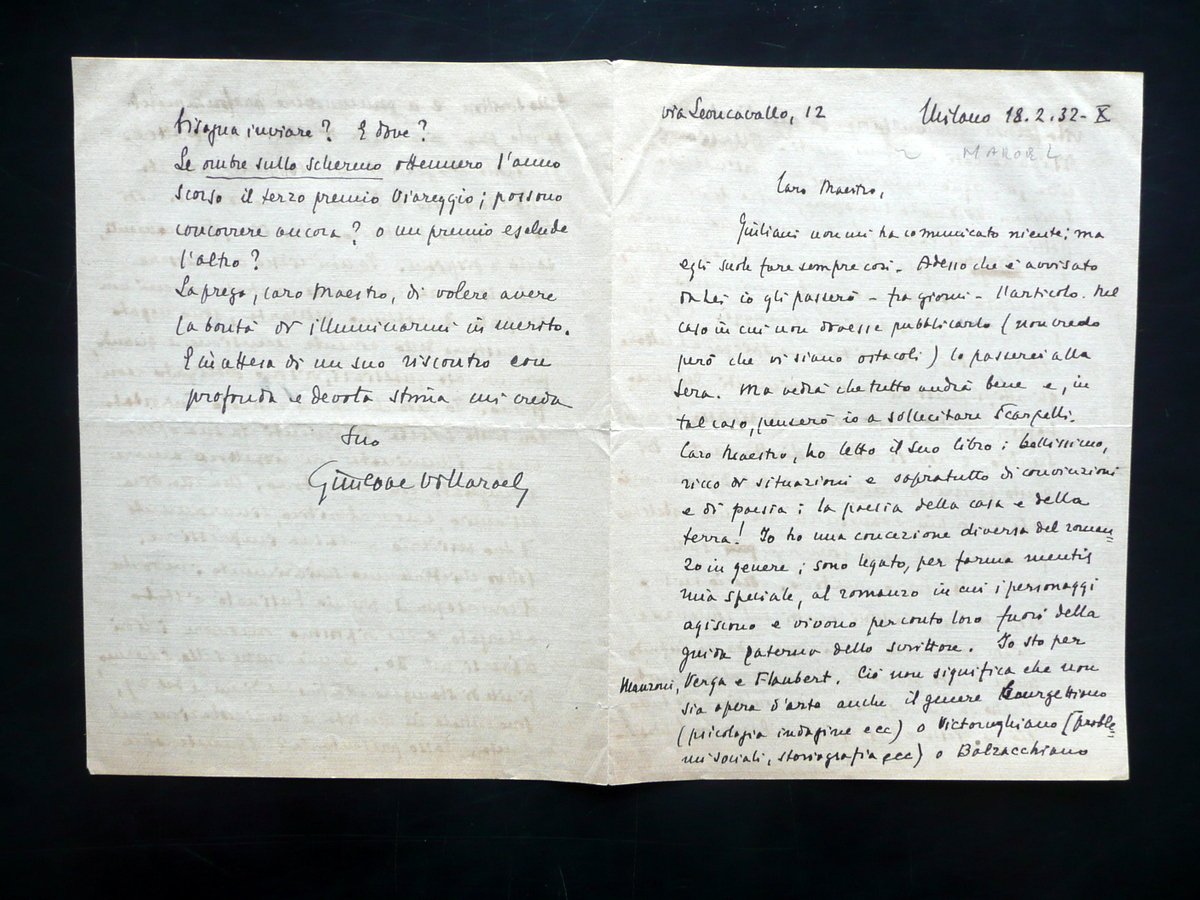 via Leoncavallo, 12
Milano 18.2.32-X
Caro Maestro,
Giuliani non mi ha comunicato niente; ma
egli suole fare sempre così. Adesso che è avvisato
da Lei io gli passerò - fra giorni - l'articolo. Nel
caso in cui non dovesse pubblicarlo (non credo
però che vi siano ostacoli) lo passerei alla
Sera. Ma vedrà che tutto andrà bene e, in
tal caso, penserò io a sollecitare Scarpelli.
Caro Maestro, ho letto il suo libro: bellissimo,
ricco di situazioni e sopratutto di convinzioni
e di poesia: la poesia della casa e della
terra! Io ho una concezione diversa del roman-
zo in genere; sono legato, per forma mentis
mia speciale, al romanzo in cui i personaggi
agiscono e vivono per conto loro fuori della
guida paterna dello scrittore. Io sto per
Manzoni, Verga e Flaubert. Ciò non significa che non
sia opera d'arte anche il genere Bourgettiano
(psicologia indagine ecc) o Victorughiano (proble-
mi sociali, storiografia ecc) o Balzacchiano
bisogna inviare? E dove?
Le ombre sullo schermo ottennero l'anno
scorso il terzo premio Viareggio; possono
concorrere ancora? o un premio esclude
l'altro?
La prego, caro Maestro, di volere avere
la bontà di illuminarmi in merito.
E in attesa di un suo riscontro con
profonda e devota stima mi creda
Suo
Giuseppe Villaroel